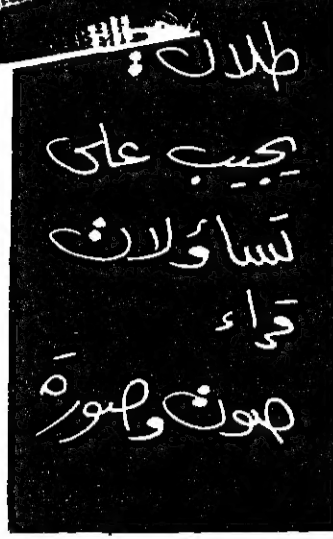 طلال :
يجيب على
تساؤلات
قراء
صوت وصورة